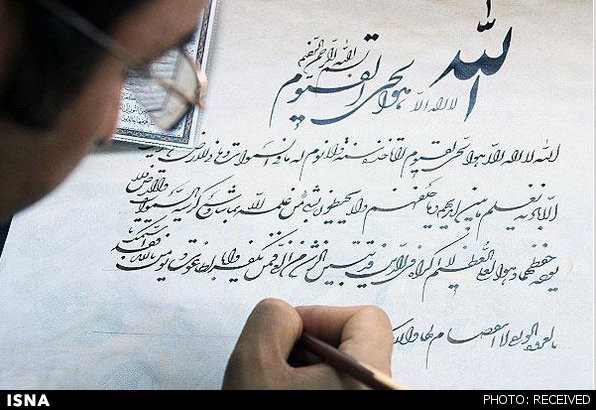 بسم الله الرحمن الرحیم
الله لا اله الا هو الحی القیوم
الله لا اله الا هو الحی القیوم لا تاخذه سنة ولا نوم له ما فی السموات و ما فی الارض
الا باذنه یعلم ما بین ایدیهم و ما خلفهم ولا یحیطون بشیء من علمه الا بما شاء وسع کرسیه السموات والارض ولا
یوده حفظهما و هو العلی العظیم لا اکراه فی الدین قد تبین الرشد من الغی فمن یکفر بالطاغوت و یومن بالله فقد استمسک
بالعروة الوثقی لا انفصام لها والله
ISNA
PHOTO: RECEIVED